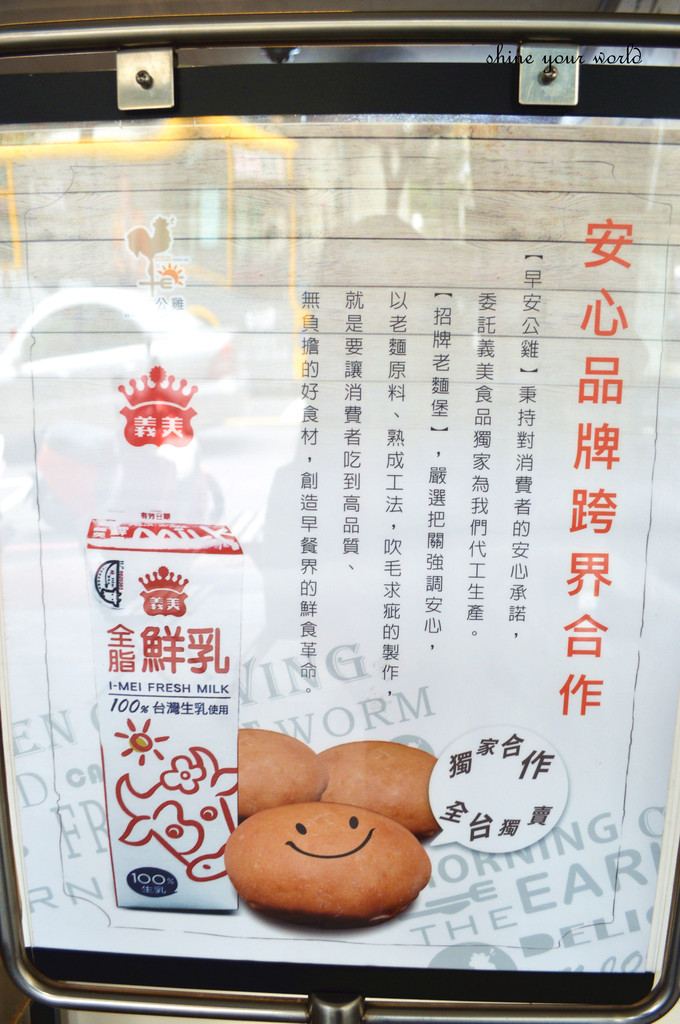 shine your world
安心品牌跨界合作
【早安公雞】秉持對消費者的安心承諾，
委託義美食品獨家為我們代工生產。
【招牌老麵堡】，嚴選把關強調安心，
以老麵原料、熟成工法，吹毛求疵的製作，
就是要讓消費者吃到高品質、
無負擔的好食材，創造早餐界的鮮食革命。
公雞
義美
MILK
義美
全脂鮮乳
I-MEI FRESH MILK
100%台灣生乳使用
100%
生乳
獨家合作
全台獨賣
WORM
MORNING
THE EAR
DELI